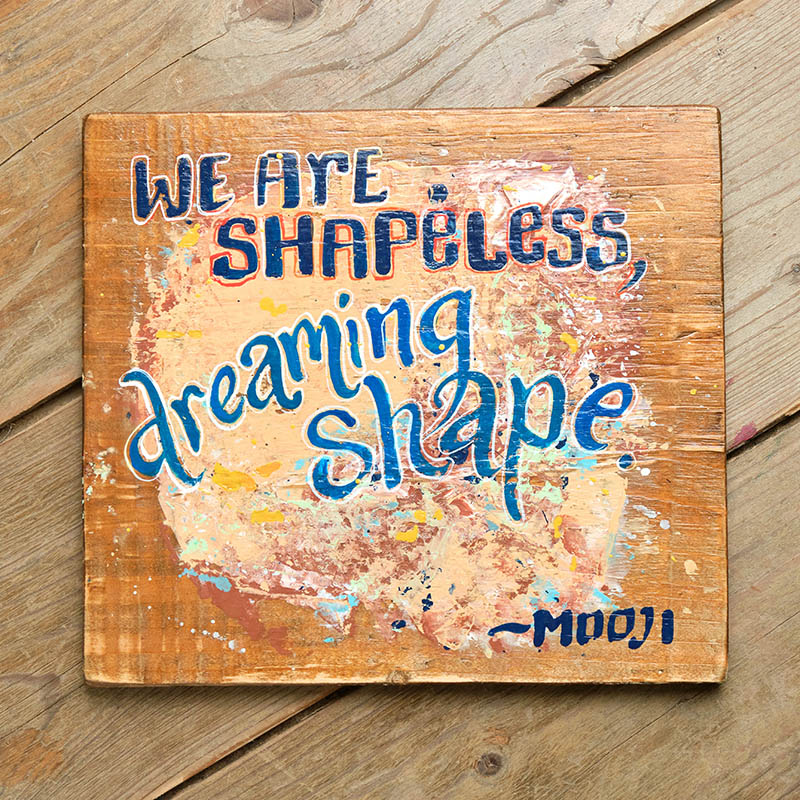 WE ARE
SHAPELESS,
dreaming
shape.
~MOOJI